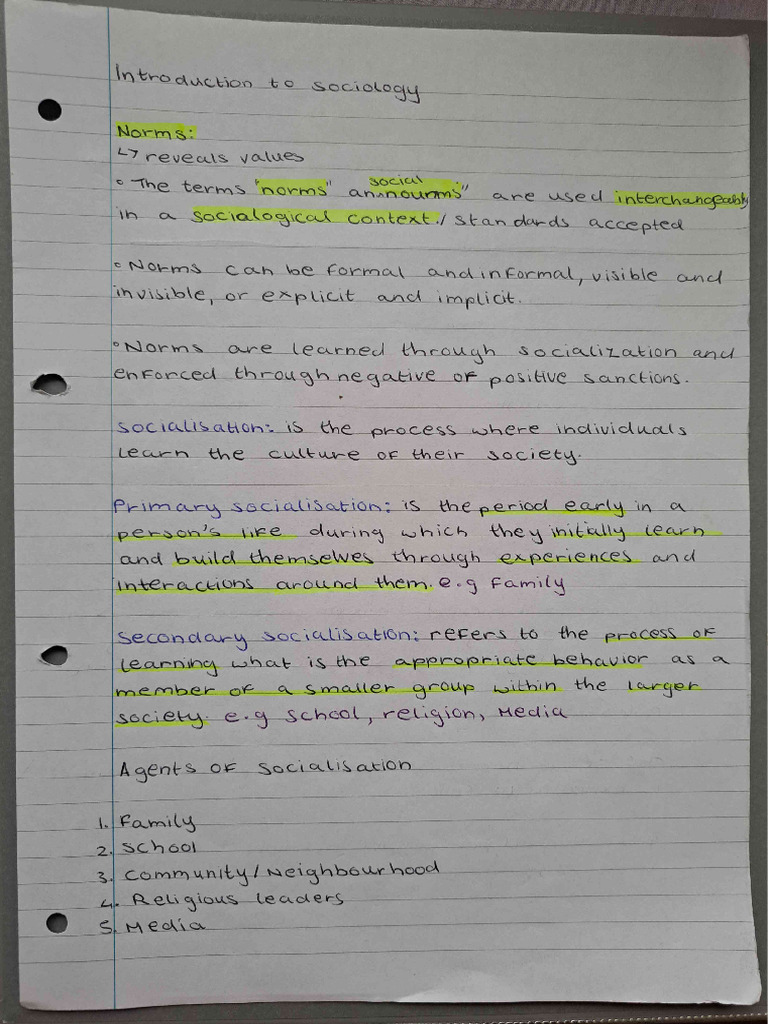 Introduction to sociology
Norms:
↳ reveals values
• The terms "norms" an social nourms" are used interchangeably
in a socialogical context./ standards accepted
• Norms can be formal and informal, visible and
invisible, or explicit and implicit.
• Norms are learned through socialization and
enforced through negative of positive sanctions.
Socialisation: is the process where individuals
learn the culture of their society.
Primary socialisation: is the period early in a
person's like during which they initially learn
and build themselves through experiences and
interactions around them. e.g Family
Secondary socialisation: refers to the process of
learning what is the appropriate behavior as a
member of a smaller group within the larger
society. e.g school, religion, Media
Agents of Socialisation
1. Family
2. School
3. Community/Neighbourhood
4. Religious leaders
5. Media